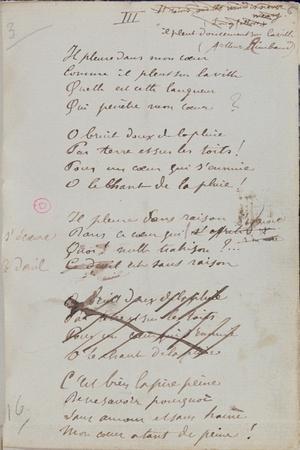 3
III
It rains, and the wind is never weary
(Longfellow)
il pleut doucement sur la ville
(Arthur Rimbaud)
Il pleure dans mon cœur
Comme il pleut sur la ville
Quelle est cette langueur
Qui pénètre mon cœur ?
O bruit doux de la pluie
Par terre et sur les toits !
Pour un cœur qui s'ennuie
O le chant de la pluie !
Il pleure sans raison
Dans ce cœur qui s'
s'écœure
Quoi ! nulle trahison ?
deuil
Ce deuil est sans raison
O bruit doux de la pluie
Par terre et sur les toits
Pour un cœur qui s'ennuie
O le chant de la pluie
C'est bien la pire peine
De ne savoir pourquoi
Sans amour et sans haine
16
Mon cœur a tant de peine !